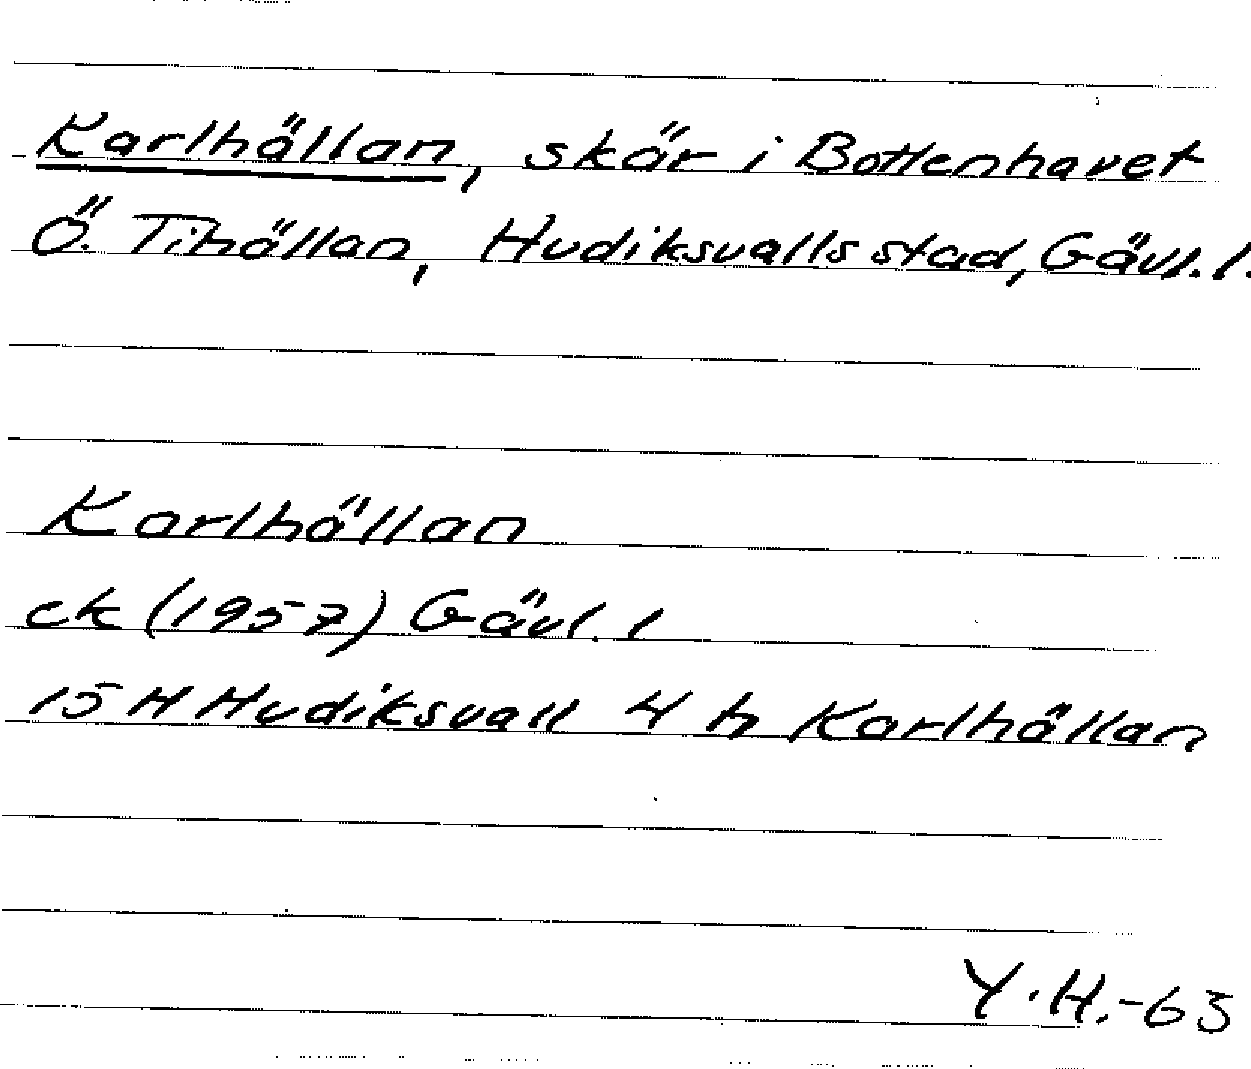 Karlhällan, skär i Bottenhavet
Ö. Tihällan, Hudiksvalls stad, Gävl. l.
Karlhällan
ek (1957) Gävl. l
15 H Hudiksvall 4 h Karlhällan
Y.H.-63